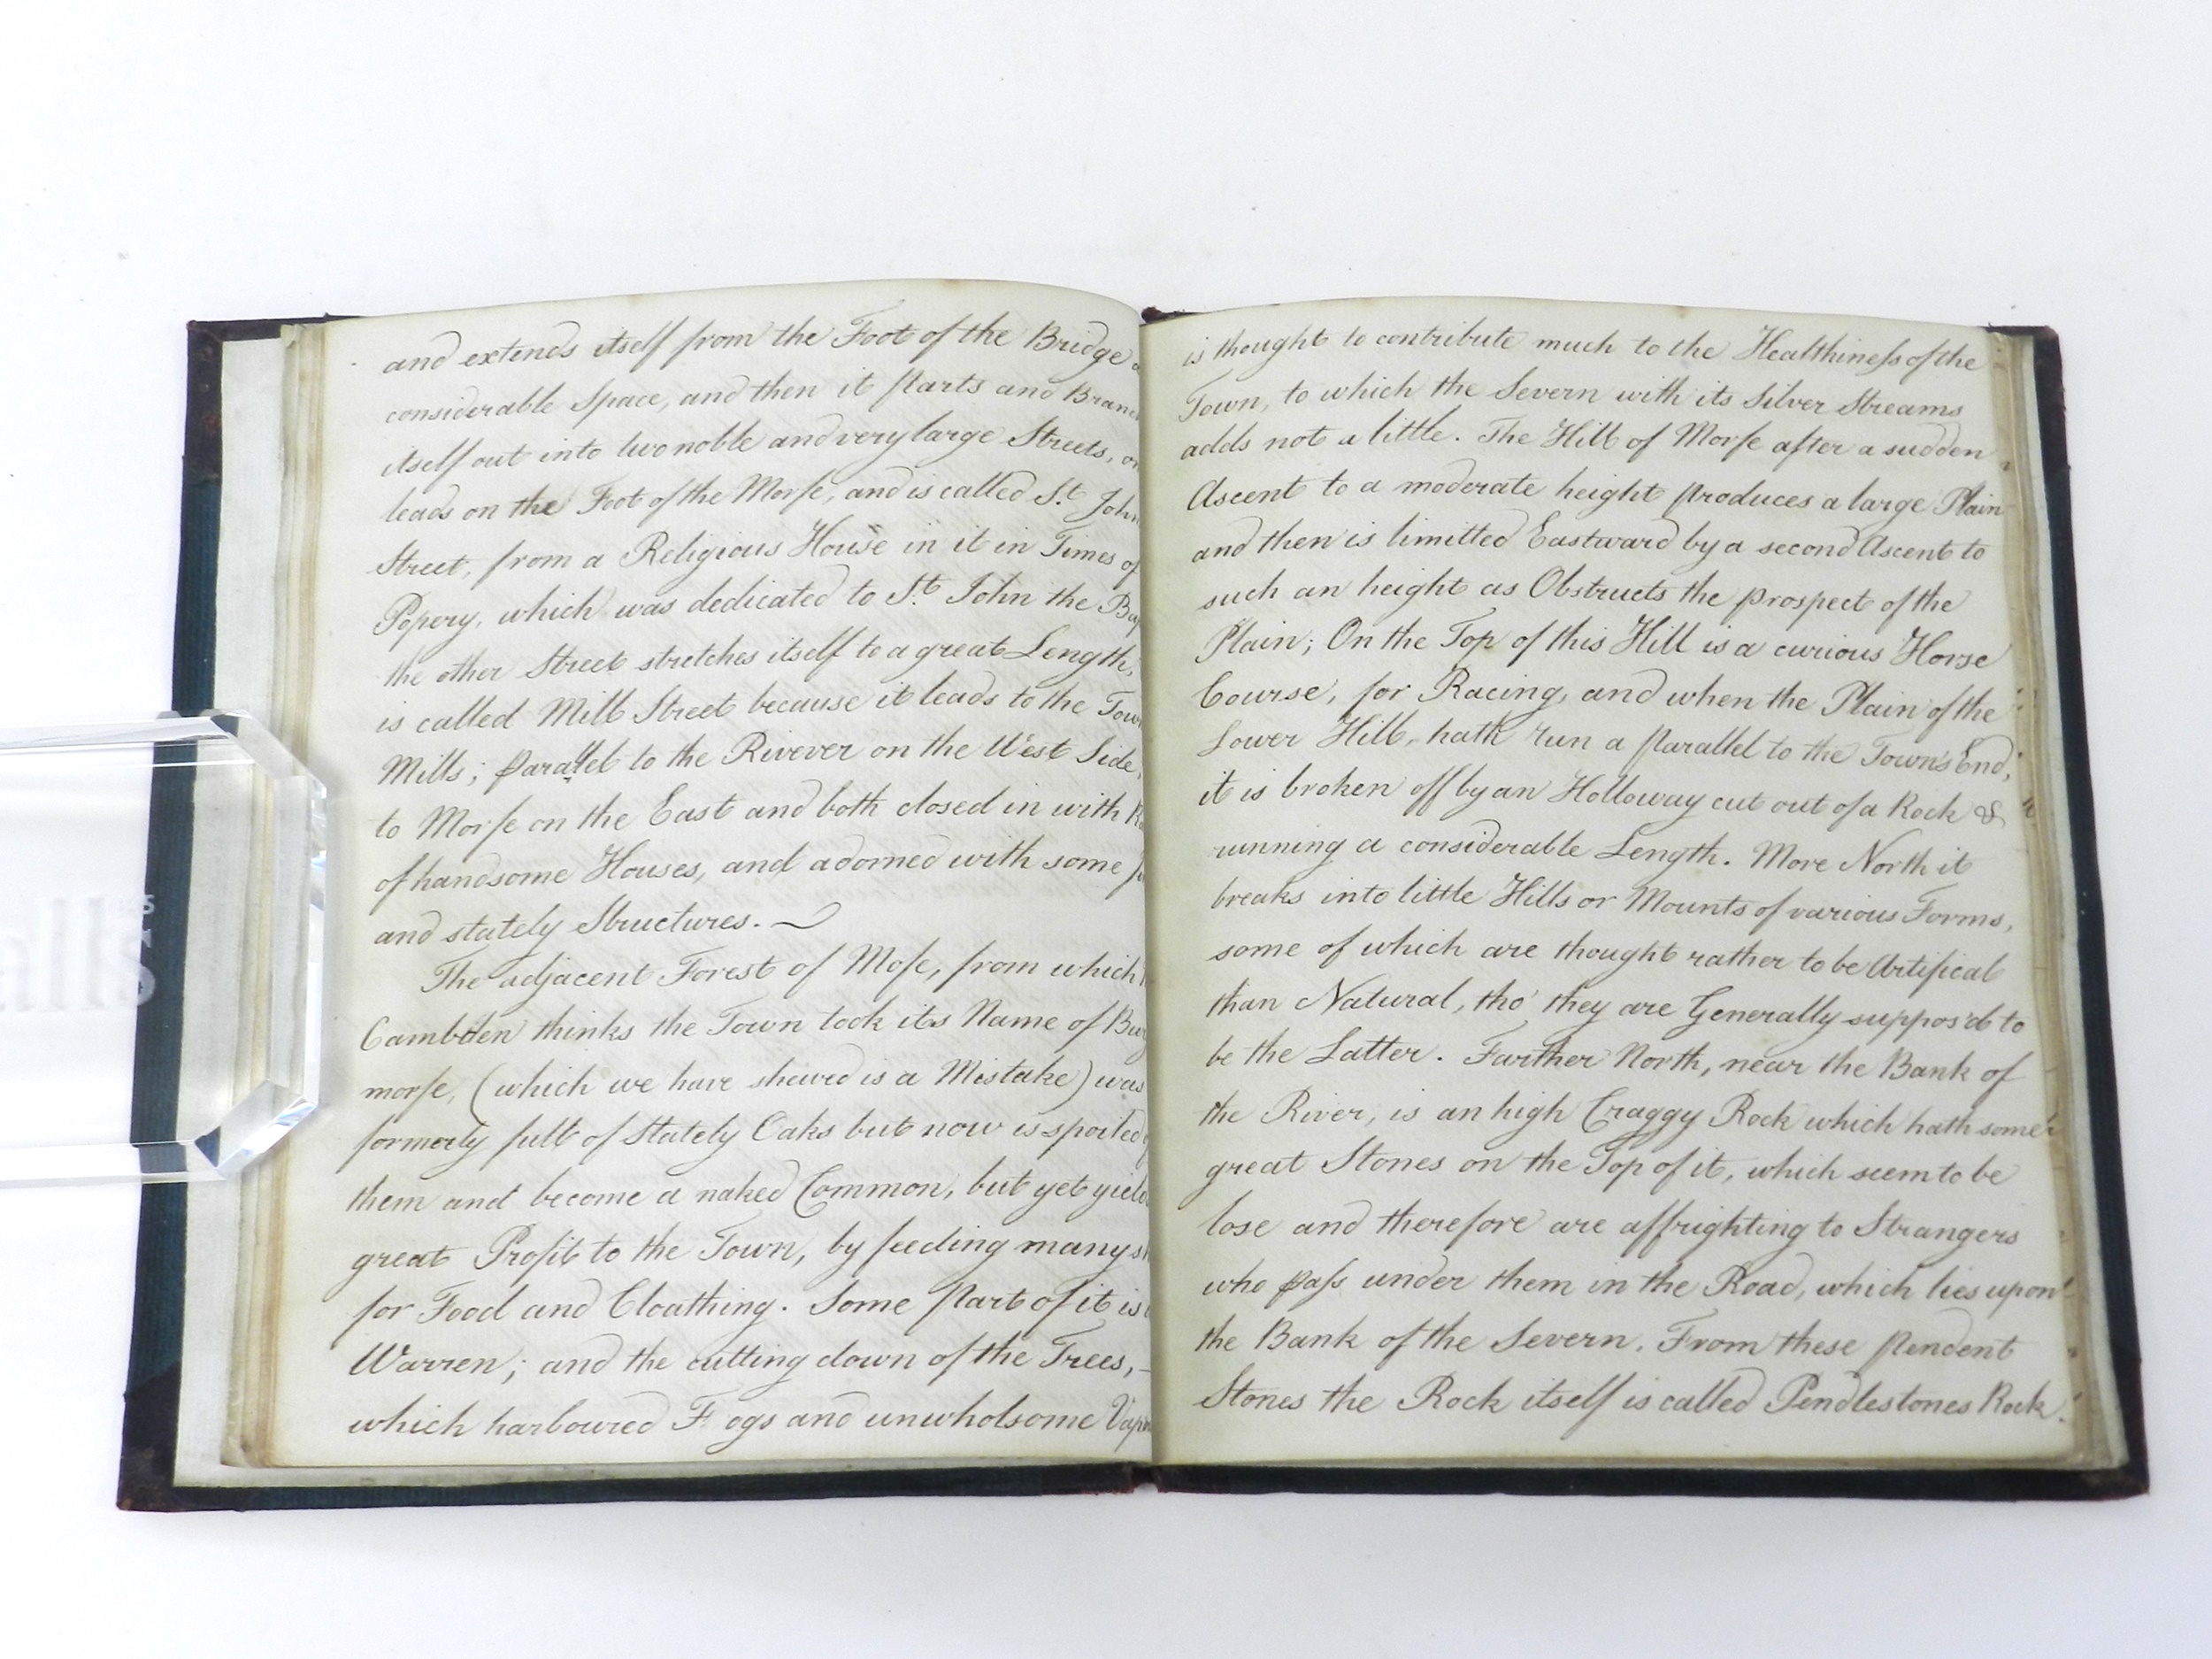 and extends itself from the Foot of the Bridge
considerable Space, and then it parts and
itself out into two noble and very large Streets,
leads on the Foot of the Morfe, and is called St. John
Street, from a Religious House in it in Times of
Popery, which was dedicated to St. John the
the other Street stretches itself to a great Length,
is called Mill Street because it leads to the
Mills; parallel to the Rivever on the West Side,
to Morfe on the East and both closed in with
of handsome Houses, and adorned with some
and stately Structures.
The adjacent Forest of Mofe, from which
Cambden thinks the Town took its Name of
morfe, (which we have shewed is a Mistake) was
formerly full of Stately Oaks but now is spoiled
them and become a naked Common, but yet
great Profit to the Town, by feeding many
for Food and Cloathing. Some Part of it is
Warren; and the cutting down of the Trees, -
which harboured F ogs and unwholsome
is thought to contribute much to the Healthiness of the
Town, to which the Severn with its Silver Streams
adds not a little. The Hill of Morfe after a sudden
Ascent to a moderate height produces a large Plain
and then is limitted Eastward by a second Ascent to
such an height as Obstructs the prospect of the
Plain; On the Top of this Hill is a curious Horse
Course, for Racing, and when the Plain of the
Lower Hill, hath run a parallel to the Town's End,
it is broken off by an Holloway cut out of a Rock &
running a considerable Length. More North it
breaks into little Hills or Mounts of various Forms,
some of which are thought rather to be Artifical
than Natural, tho' they are Generally suppos'd to
be the Latter. Further North, near the Bank of
the River, is an high Craggy Rock which hath some
great Stones on the Top of it, which seem to be
lose and therefore are affrighting to Strangers
who pass under them in the Road, which lies upon
the Bank of the Severn. From these pendent
Stones the Rock itself is called Pendlestones Rock.